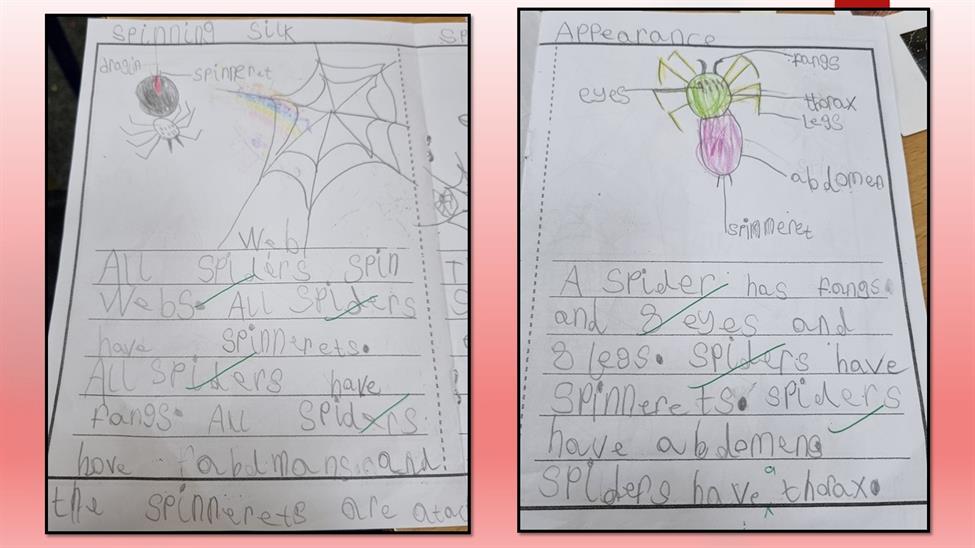 Spinning Silk
dragin
spinneret
Web
All spiders spin
webs. All spiders
have spinnerets.
All spiders have
fangs. All spiders
have fabdmans and
the spinnerets are atac
Appearance
fangs
eyes
thorax
Legs
abdomen
spinneret
A spider has fangs
and 8 eyes and
8 legs. spiders have
spinnerets. spiders
have abdomens
a
spiders have thorax.